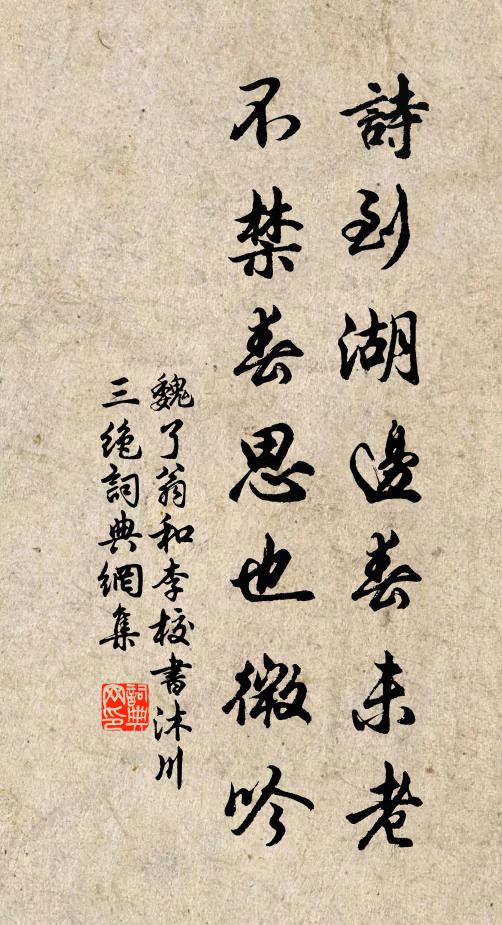 詩到湖邊春未老
不禁春思也微吟
魏了翁和李校書沐川
三絶詞典網集
詞典
网印